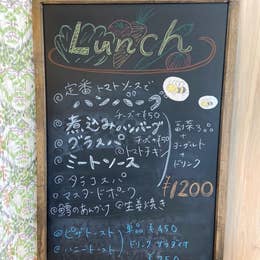 Lunch
◎定番トマトソースで
ハンバーグ
チーズ+¥50
◎煮込みハンバーグ
◎グラスパ チーズ+¥50
◎トマトチキン
◎ミートソース
◎タラコスパ
マスタードポーク
◎鱈のあんかけ ◎生姜焼き
副菜3コ
+
ヨーグルト
+
ドリンク
¥1200
◎ピザトースト 単品¥450
◎ハニートースト ドリンクサラダ付
¥750